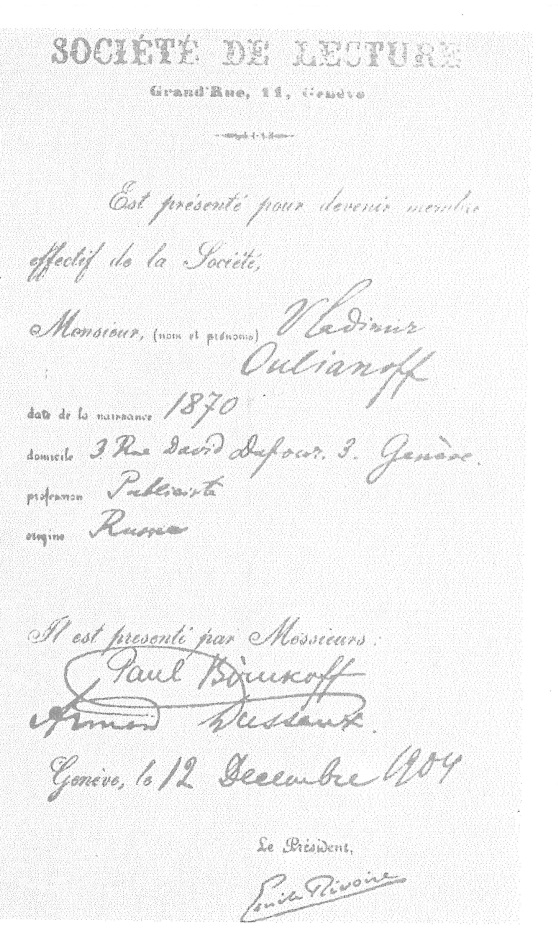 SOCIÉTÉ DE LECTURE
Grand'Rue, 11, Genève
Est présenté pour devenir membre
effectif de la Société,
Monsieur, (nom et prénoms) Vladimir
Oulianoff
date de la naissance 1870
domicile 3 Rue David Dufour. 3. Genève.
profession Publiciste
origine Russe
Il est présenté par Messieurs :
Paul Birukoff
Dussaux.
Genève, le 12 Decembre 1904
Le Président,
Emile Rivoire